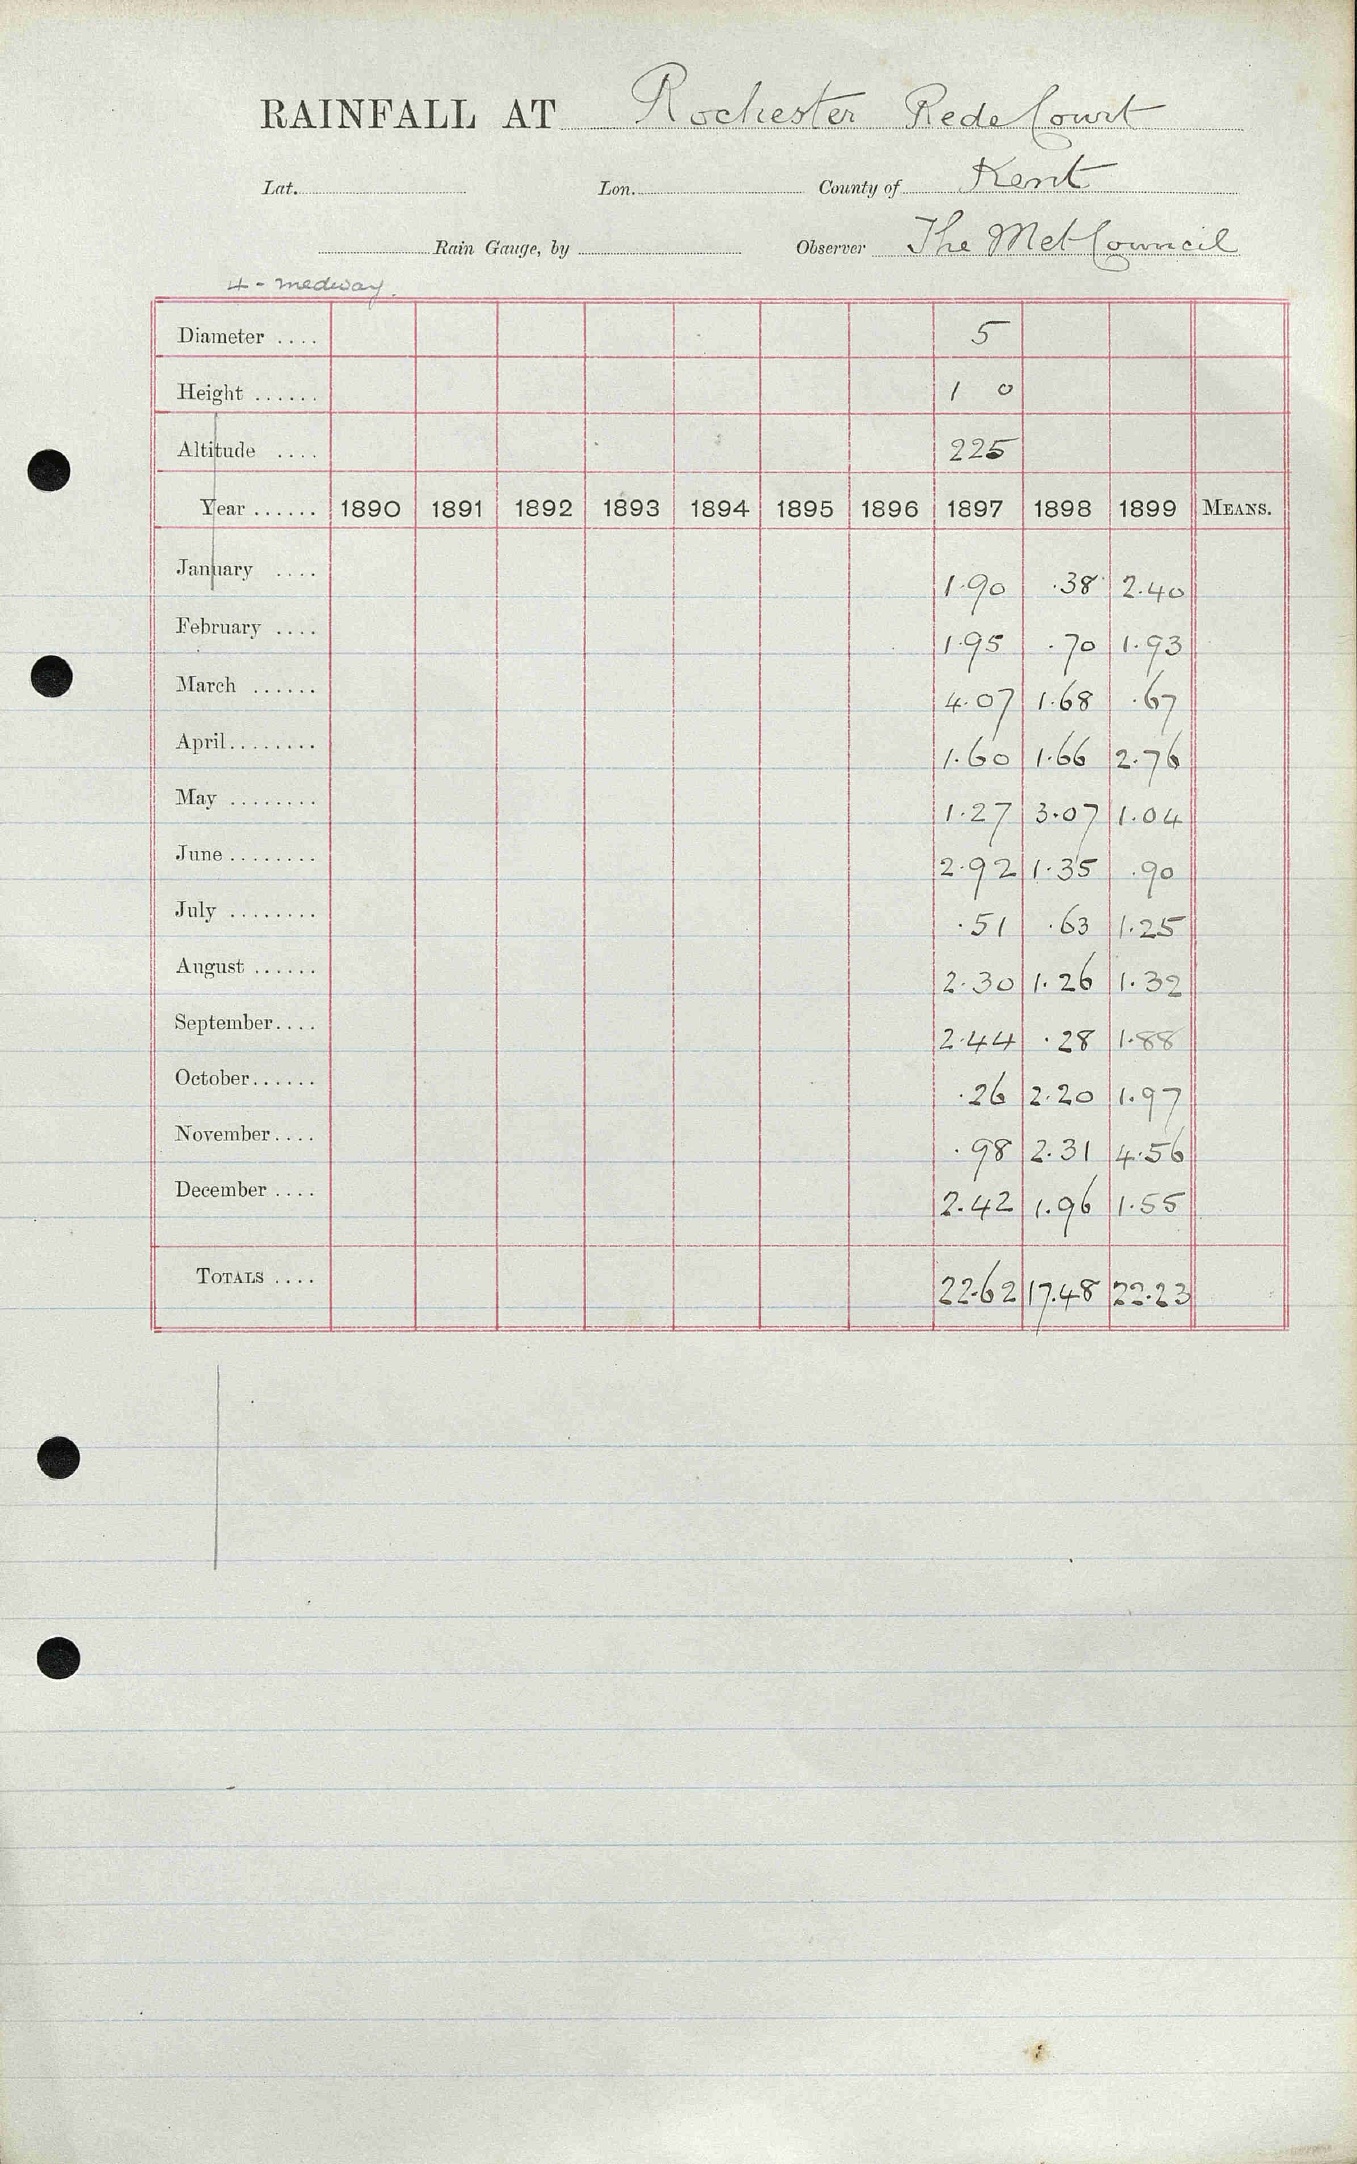 RAINFALL AT Rochester Rede Court
Lat. Lon. County of Kent
Rain Gauge, by Observer The Met Council
4 - Medway.
Diameter .... 5
Height ...... 1 0
Altitude .... 225
Year ...... 1890 1891 1892 1893 1894 1895 1896 1897 1898 1899 MEANS.
January .... 1.90 .38 2.40
February .... 1.95 .70 1.93
March ...... 4.07 1.68 .67
April........ 1.60 1.66 2.76
May ........ 1.27 3.07 1.04
June ........ 2.92 1.35 .90
July ........ .51 .63 1.25
August ...... 2.30 1.26 1.32
September.... 2.44 .28 1.88
October...... .26 2.20 1.97
November.... .98 2.31 4.56
December .... 2.42 1.96 1.55
TOTALS .... 22.62 17.48 22.23